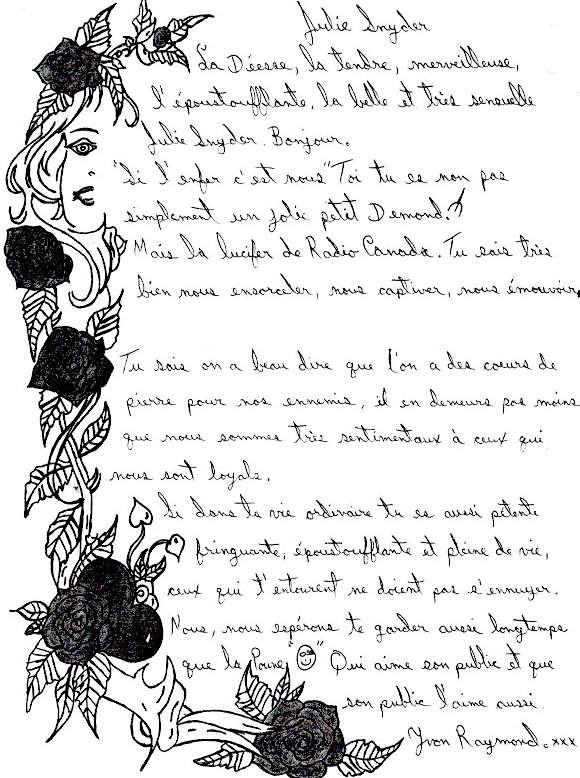 Julie Snyder
La Déesse, la tendre, merveilleuse,
l'époustoufflante, la belle et très sensuelle
Julie Snyder. Bonjour.
"Si l'enfer c'est nous" Toi tu es non pas
simplement un jolie petit Demond.
Mais la lucifer de Radio Canada. Tu sais très
bien nous ensorceler, nous captiver, nous émouvoir,
Tu sais on a beau dire que l'on a des coeurs de
pierre pour nos ennemis, il en demeurs pas moins
que nous sommes très sentimentaux à ceux qui
nous sont loyals.
Si dans ta vie ordinaire tu es aussi pétente
fringuante, époustoufflante et pleine de vie,
ceux qui t'entourent ne doient pas s'ennuyer.
Nous, nous espérons te garder aussi longtemps
que la Poune "☺" Qui aime son public et que
son public l'aime aussi.
Yvon Raymond.xxx